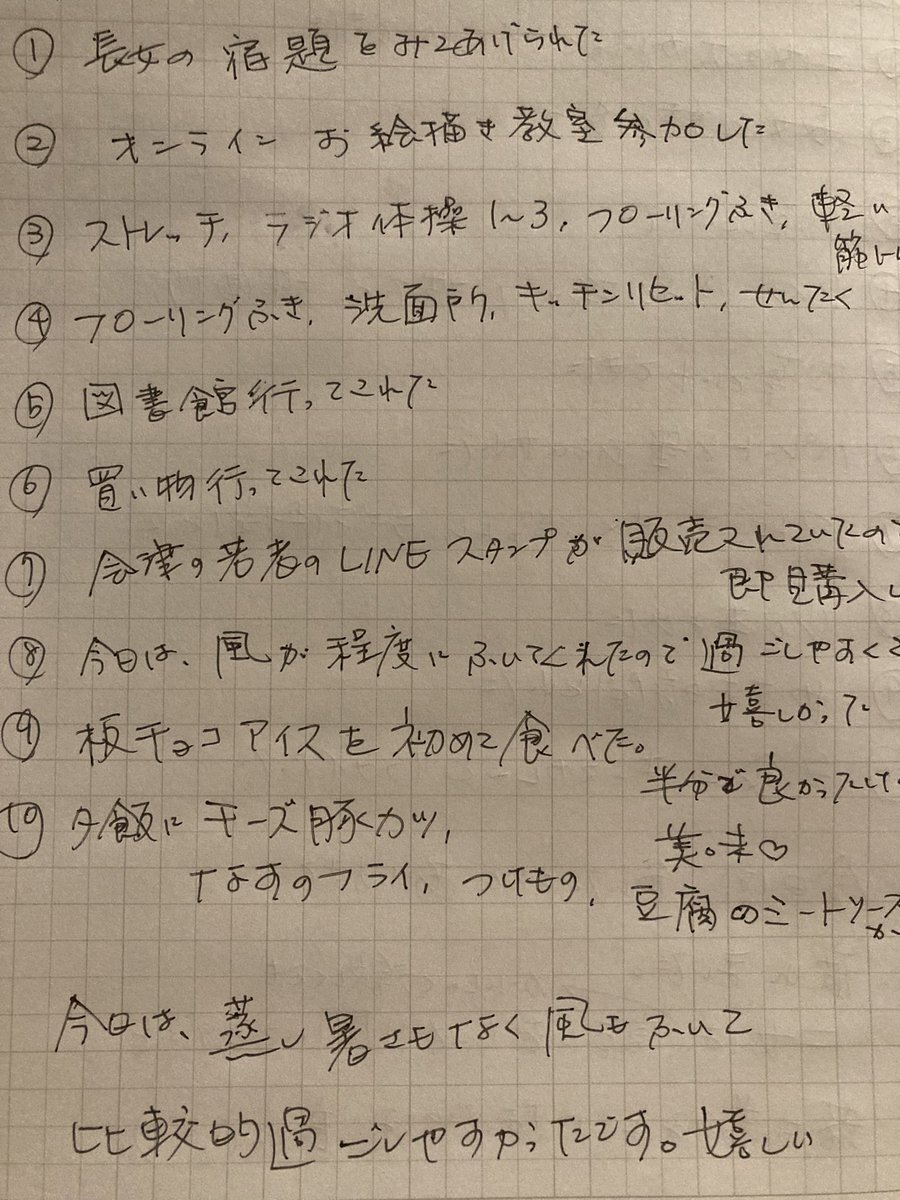 ① 長女の宿題をみてあげられた
② オンラインお絵描き教室参加した
③ ストレッチ, ラジオ体操1〜3, フローリングふき, 軽い
筋トレ
④ フローリングふき, 洗面所, キッチンリセット, せんたく
⑤ 図書館行ってこれた
⑥ 買い物行ってこれた
⑦ 会津の若者のLINEスタンプが販売されていたので
即購入し
⑧ 今日は、風が程度にふいてくれたので過ごしやすくて
嬉しかった
⑨ 板チョコアイスを初めて食べた。
半分で良かったけ
美味♡
⑩ 夕飯にチーズ豚カツ,
なすのフライ, つけもの,
豆腐のミートソース
か
今日は、蒸し暑さもなく風もふいて
比較的過ごしやすかったです。嬉しい